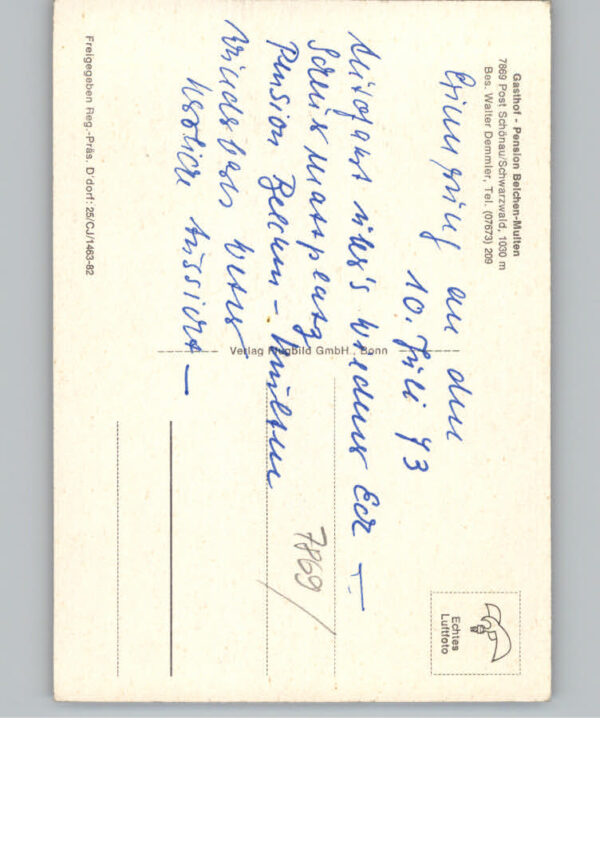 Gasthof - Pension Belchen-Multen
7869 Post Schönau/Schwarzwald, 1030 m
Bes. Walter Demmler, Tel. (07673) 209
Erinnerung an den
10. Juli 73
Autofahrt über's Wieduer Eck —
Pension Belchen - Multen
wunderbares Wetter
herrliche Aussicht —
Verlag Flugbild GmbH., Bonn
7869
Echtes
Luftfoto
Freigegeben Reg.-Präs. D'dorf: 25/CJ/1463-82